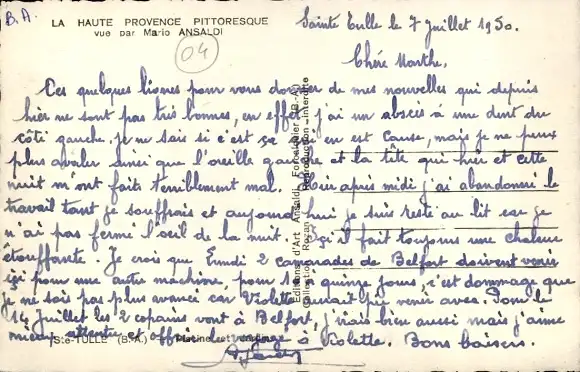 B.A.
LA HAUTE PROVENCE PITTORESQUE
vue par Mario ANSALDI
04
Sainte Tulle le 7 juillet 1950.
Chère Marthe,
Ces quelques lignes pour vous donner de mes nouvelles qui depuis
hier ne sont pas très bonnes, en effet j'ai un abscès à une dent du
côté gauche. je ne sais si c'est ça qui en est cause, mais je ne peux
plus avaler ainsi que l'oreille gauche et la tête qui hier et cette
nuit m'ont fait terriblement mal. Hier après midi j'ai abandonné le
travail tant je souffrais et aujourd'hui je suis resté au lit car je
n'ai pas fermé l'oeil de la nuit. Ici il fait toujours une chaleur
étouffante. Je crois que lundi 2 camarades de Belfort doivent venir
ici pour une autre machine, pour quinze jours, c'est dommage que
je ne sois pas plus avancé car Violette aurait pu venir avec. Pour le
14 juillet les 2 copains vont à Belfort, j'irais bien aussi mais j'aime
mieux attendre et à Violette. Bons baisers.
Ste-TULLE (B.-A.)
Editions d'Art Ansaldi, Forcalquier (B.-A.)
Reproduction interdite